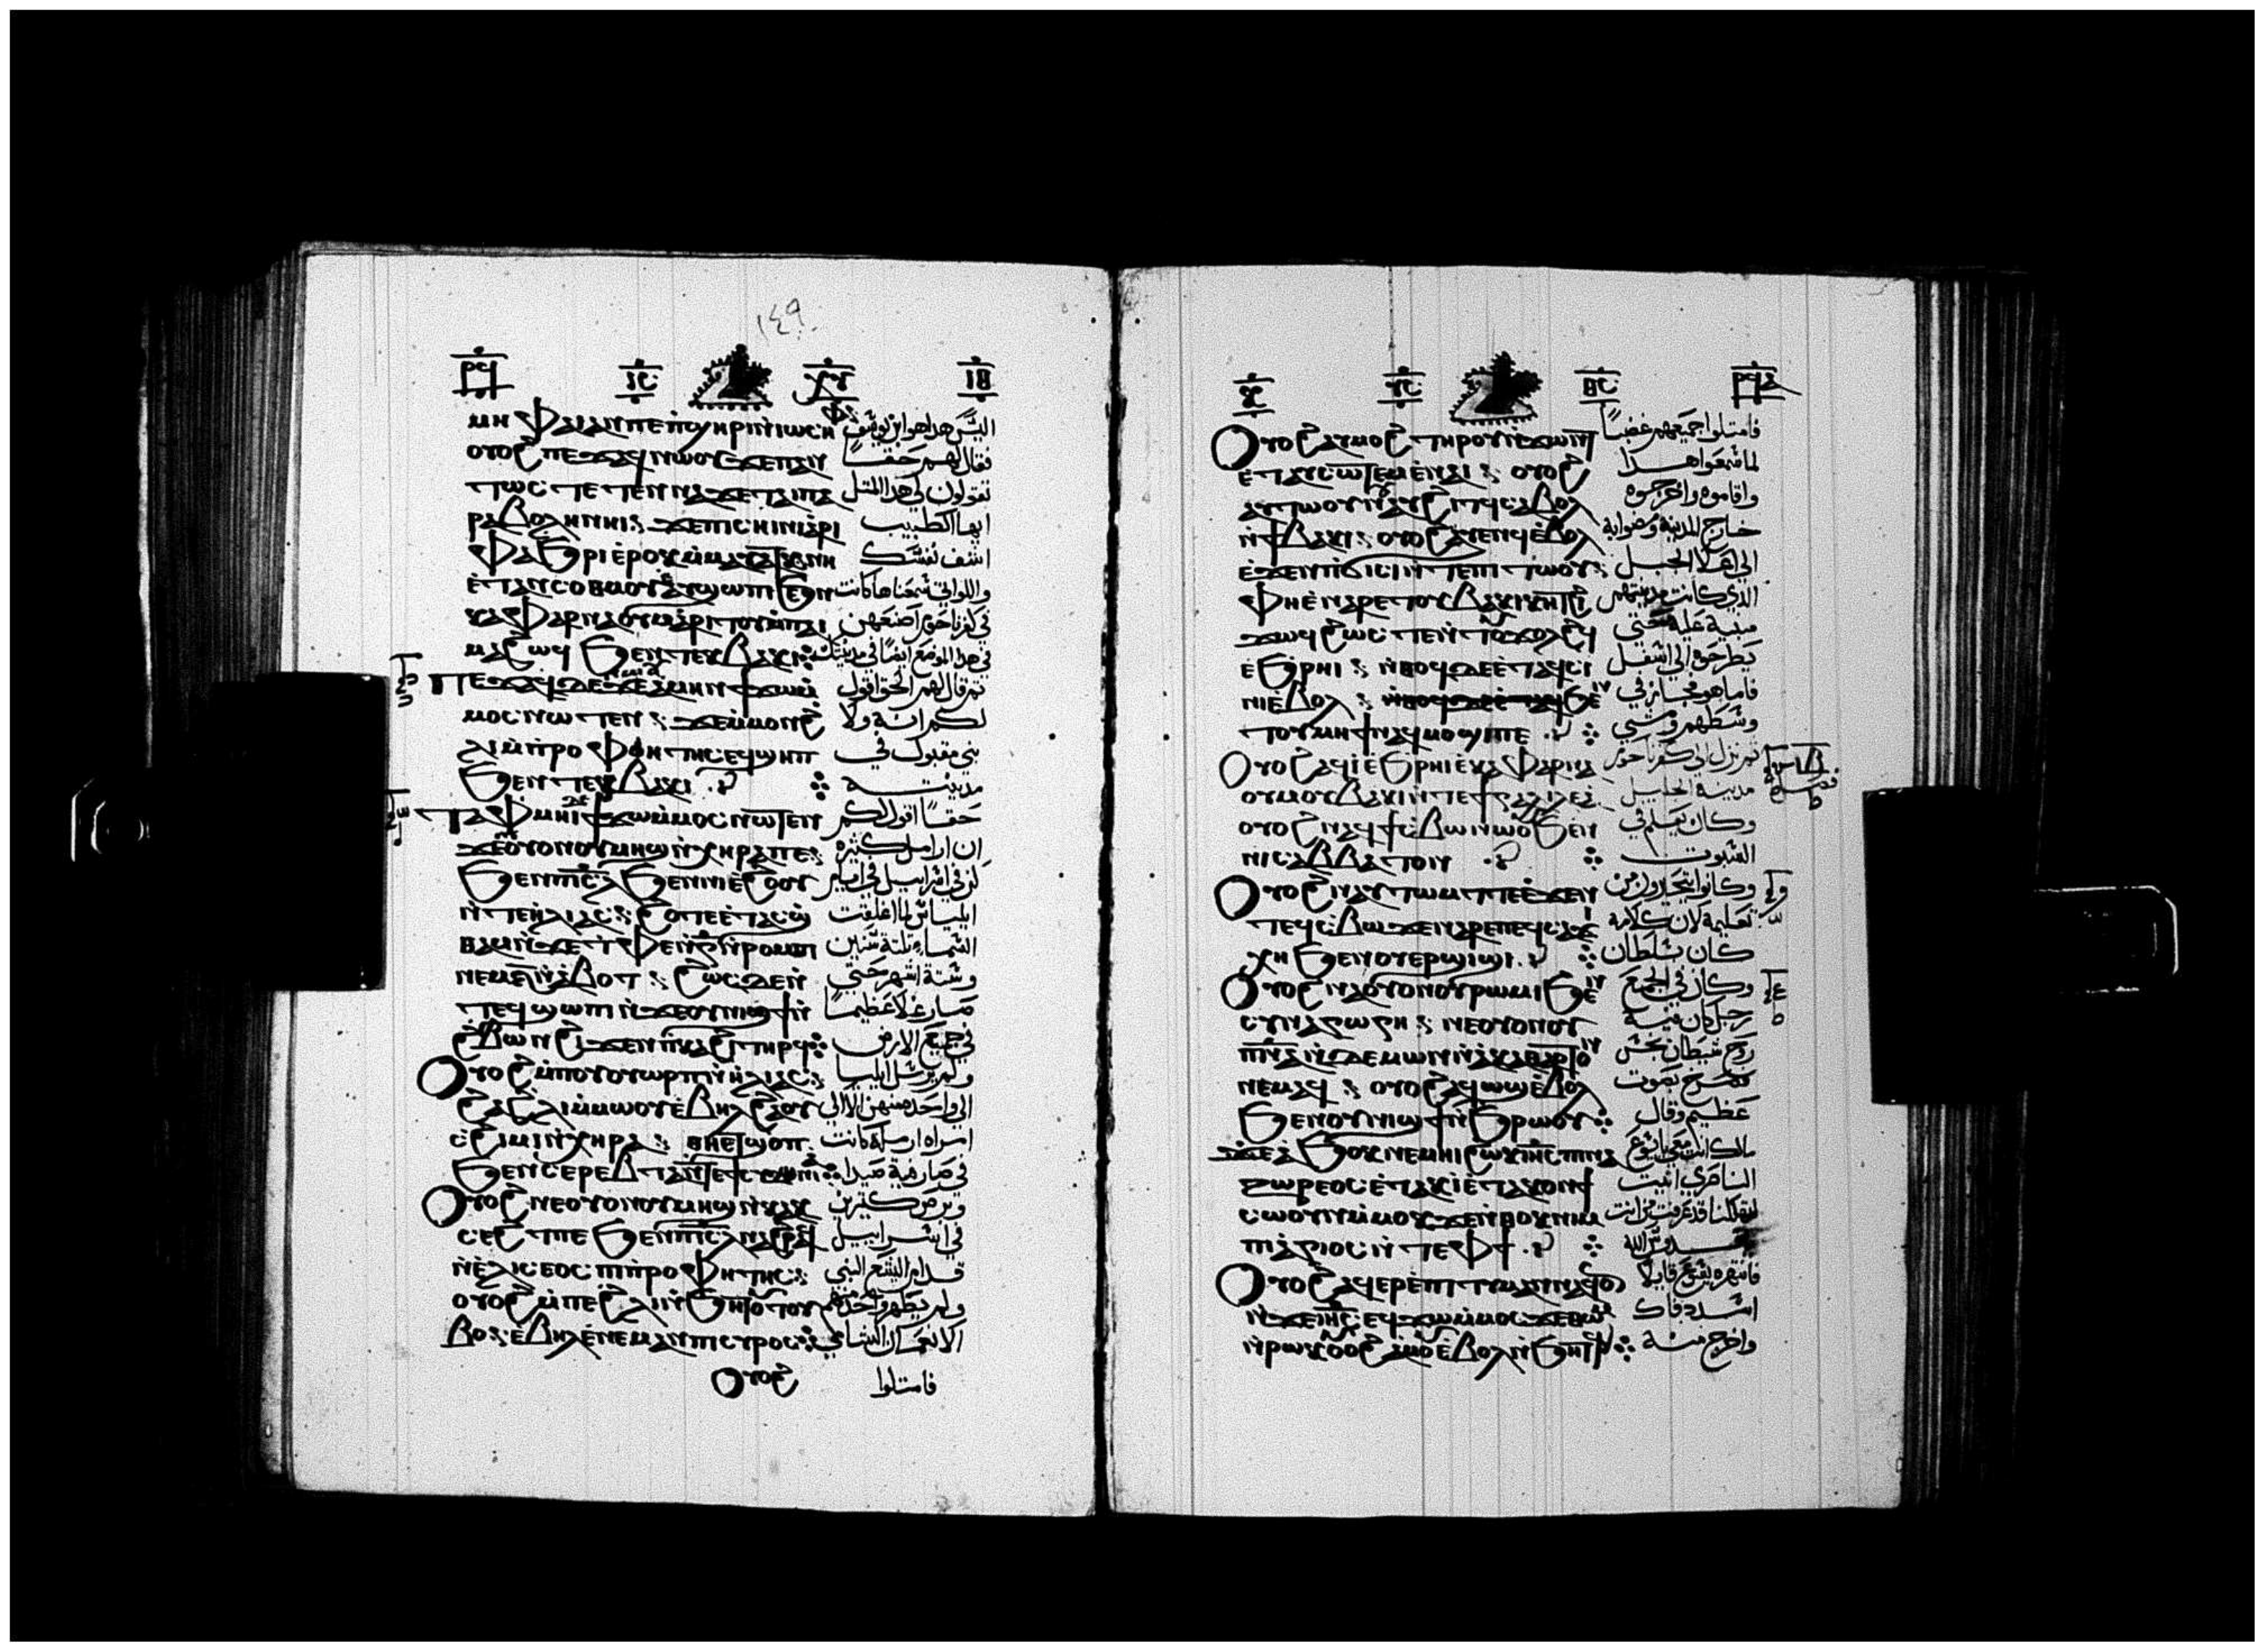 ١٤٩
ⲙⲏ ⲫⲁⲓ ⲁⲛ ⲡⲉ ⲡϣⲏⲣⲓ ⲛ̀ⲓⲱⲥⲏⲫ
ⲟⲩⲟϩ ⲡⲉϫⲁϥ ⲛⲱⲟⲩ ϫⲉ ⲡⲁⲛ
ⲧⲱⲥ ⲧⲉⲧⲉⲛⲛⲁϫⲉ ⲧⲁⲓⲡⲁ
ⲣⲁⲃⲟⲗⲏ ⲛⲏⲓ ϫⲉ ⲡⲓⲥⲏⲓⲛⲓ ⲁⲣⲓ
ⲫⲁϧⲣⲓ ⲉ̀ⲣⲟⲕ ⲙ̀ⲙⲁⲩⲁⲧⲕ ⲛⲏ
ⲉ̀ⲧⲁⲛⲥⲟⲑⲙⲟⲩ ⲁⲩϣⲱⲡⲓ ϧⲉⲛ
ⲕⲁⲫⲁⲣⲛⲁⲟⲩⲙ ⲁⲣⲓⲧⲟⲩ ⲙ̀ⲡⲁⲓ
ⲙⲁ ϩⲱϥ ϧⲉⲛ ⲧⲉⲕⲃⲁⲕⲓ
ⲡⲉϫⲁϥ ⲇⲉ ϫⲉ ⲁ̀ⲙⲏⲛ ϯϫⲱ ⲙ̀
ⲙⲟⲥ ⲛⲱⲧⲉⲛ ϫⲉ ⲙ̀ⲙⲟⲛ ϩ
ⲗⲓ ⲙ̀ⲡⲣⲟⲫⲏⲧⲏⲥ ⲉϥϣⲏⲡ
ϧⲉⲛ ⲧⲉϥⲃⲁⲕⲓ
ⲧⲁⲫⲙⲏⲓ ⲇⲉ ϯϫⲱ ⲙ̀ⲙⲟⲥ ⲛⲱⲧⲉⲛ
ϫⲉ ⲟⲩⲟⲛ ⲟⲩⲙⲏϣ ⲛ̀ⲭⲏⲣⲁ ⲡⲉ
ϧⲉⲛ ⲡⲓⲥⲗ ϧⲉⲛ ⲛⲓⲉ̀ϩⲟⲟⲩ
ⲛ̀ⲧⲉ ⲏⲗⲓⲁⲥ ϩⲟⲧⲉ ⲉ̀ⲧⲁⲥϣ
ⲑⲁⲙ ⲛ̀ϫⲉ ⲧⲫⲉ ⲛ̀ⲅ̅ ⲛ̀ⲣⲟⲙⲡⲓ
ⲛⲉⲙ ⲋ̅ ⲛ̀ⲁ̀ⲃⲟⲧ ϩⲱⲥ ⲇⲉ ⲛ̀
ⲧⲉϥϣⲱⲡⲓ ⲛ̀ϫⲉ ⲟⲩⲛⲓϣϯ ⲛ̀
ϩⲃⲱⲛ ϩⲓϫⲉⲛ ⲡⲕⲁϩⲓ ⲧⲏⲣϥ
Ⲟⲩⲟϩ ⲙ̀ⲡⲟⲩⲟⲩⲱⲣⲡ ⲛ̀ⲏⲗⲓⲁⲥ
ϩⲁ ϩⲗⲓ ⲙ̀ⲙⲱⲟⲩ ⲉ̀ⲃⲏⲗ ϩⲁ ⲟⲩ
ⲥϩⲓⲙⲓ ⲛ̀ⲭⲏⲣⲁ ⲑⲏ ⲉⲧϣⲟⲡ
Ⲟⲩⲟϩ ⲛⲉ ⲟⲩⲟⲛ ⲟⲩⲙⲏϣ ⲛ̀ⲕⲁⲕ
ⲥⲉϩⲧ ⲡⲉ ϧⲉⲛ ⲡⲓⲥⲗ ⲛⲁϩⲣⲉⲛ
ⲛ̀ⲉⲗⲓⲥⲉⲟⲥ ⲡⲓⲡⲣⲟⲫⲏⲧⲏⲥ
ⲟⲩⲟϩ ⲙ̀ⲡⲉ ϩⲗⲓ ⲛ̀ϧⲏⲧⲟⲩ ⲧⲟⲩ
ⲃⲟ ⲉ̀ⲃⲏⲗ ⲉ̀ⲛⲉⲙⲁⲛ ⲡⲓⲥⲩⲣⲟⲥ
Ⲟⲩⲟϩ
اليس هدا هو ابن يوسف
فقال لهم حقا
تقولون لي هدا المتل
ايها الطبيب
اشف نفسك
واللواتي سمعناها كانت
في كفرناحوم اصنعهن
في هدا الموضع ايضا في مدينتك
تم قال لهم الحق اقول
لكم انه ولا
نبي مقبول في
مدينته
حقا اقول لكم
ان ارامل كتيره
كن في اسراييل في ايام
ايلياس لما اغلقت
السماء تلتة سنين
وستة اشهر حتي
صار غلا عظيما
في جميع الارض
ولم يرسل ايليا
الي واحده منهن الا الي
امراه ارمله كانت
في صارفية صيدا
وبرص كتيرين
في اسراييل
قدام اليشع النبي
ولم يطهر واحد منهم
الا نعمان الشامي
فامتلوا
Ⲟⲩⲟϩ ⲁⲩⲙⲟϩ ⲧⲏⲣⲟⲩ ⲛ̀ϫⲱⲛⲧ
ⲉ̀ⲧⲁⲩⲥⲱⲧⲉⲙ ⲉ̀ⲛⲁⲓ ⲟⲩⲟϩ
ⲁⲩⲧⲱⲟⲩⲛⲟⲩ ⲁⲩϩⲓⲧϥ ⲥⲁⲃⲟⲗ
ⲛ̀ϯⲃⲁⲕⲓ ⲟⲩⲟϩ ⲁⲩⲉⲛϥ ⲉ̀ⲃⲟⲗ
ⲉ̀ϫⲉⲛ ⲡϭⲓⲥⲓ ⲛ̀ⲧⲉ ⲡⲓⲧⲱⲟⲩ
ⲫⲏ ⲉ̀ⲛⲁⲣⲉ ⲧⲟⲩⲃⲁⲕⲓ ⲕⲏⲧ ϩⲓ
ϫⲱϥ ϩⲱⲥ ⲧⲉ ⲛ̀ⲧⲟⲩϫⲟⲗϩϥ
ⲉ̀ϧⲣⲏⲓ ⲛ̀ⲑⲟϥ ⲇⲉ ⲉ̀ⲧⲁϥⲥⲓ
ⲛⲓ ⲉ̀ⲃⲟⲗ ϧⲉⲛ
ⲧⲟⲩⲙⲏϯ ⲛⲁϥⲙⲟϣⲓ ⲡⲉ
Ⲟⲩⲟϩ ⲁϥⲓ̀ ⲉ̀ϧⲣⲏⲓ ⲉ̀ⲕⲁⲫⲁⲣⲛⲁ
ⲟⲩⲙ ⲟⲩⲃⲁⲕⲓ ⲛ̀ⲧⲉ ϯⲅⲁⲗⲓⲗⲉⲁ
ⲟⲩⲟϩ ⲛⲁϥϯⲥⲃⲱ ⲛⲱⲟⲩ ϧⲉⲛ
ⲛⲓⲥⲁⲃⲃⲁⲧⲟⲛ
Ⲟⲩⲟϩ ⲛⲁⲩⲧⲱⲙⲧ ⲡⲉ ⲉ̀ϫⲉⲛ
ⲧⲉϥⲥⲃⲱ ϫⲉ ⲛⲁⲣⲉ ⲡⲉϥⲥⲁϫⲓ
ⲭⲏ ϧⲉⲛ ⲟⲩⲉⲣϣⲓϣⲓ
Ⲟⲩⲟϩ ⲛⲁⲟⲩⲟⲛ ⲟⲩⲣⲱⲙⲓ ϧⲉⲛ
ⲥⲩⲛⲁⲅⲱⲅⲏ ⲛⲉ ⲟⲩⲟⲛ ⲟⲩ
ⲡⲛⲁ ⲛ̀ⲇⲉⲙⲱⲛ ⲛ̀ⲁⲕⲁⲑⲁⲣⲧⲟⲛ
ⲛⲉⲙⲁϥ ⲟⲩⲟϩ ⲁϥⲱϣ ⲉ̀ⲃⲟⲗ
ϧⲉⲛ ⲟⲩⲛⲓϣϯ ⲛ̀ϧⲣⲱⲟⲩ
ϫⲉ ⲁϧⲟⲕ ⲛⲉⲙⲏⲓ ϩⲱⲕ ⲓⲏⲥ ⲡⲓⲛⲁ
ⲍⲱⲣⲉⲟⲥ ⲉ̀ⲧⲁⲕⲓ̀ ⲉ̀ⲧⲁⲕⲟⲛ ϯ
ⲥⲱⲟⲩⲛ ⲙ̀ⲙⲟⲕ ϫⲉ ⲛ̀ⲑⲟⲕ ⲛⲓⲙ
ⲡⲓⲁⲅⲓⲟⲥ ⲛ̀ⲧⲉ ⲫϯ
Ⲟⲩⲟϩ ⲁϥⲉⲣⲉ̀ⲡⲓⲧⲓⲙⲁⲛ ⲛⲁϥ
ⲛ̀ϫⲉ ⲓⲏⲥ ⲉϥϫⲱ ⲙ̀ⲙⲟⲥ ϫⲉ ⲑⲱⲙ
ⲛ̀ⲣⲱⲕ ⲟⲩⲟϩ ⲁ̀ⲙⲟⲩ ⲉ̀ⲃⲟⲗ ⲛ̀ϧⲏⲧϥ
فامتلوا جميعهم غضبا
لما سمعوا هدا
واقاموه واخرجوه
خارج المدينة ومضوا به
الي اعلا الجبل
الدي كانت مدينتهم
مبنية عليه حتي
يطرحوه الي اسفل
فاما هو فجاز في
وسطهم ومشي
تم نزل الي كفرناحوم
مدينة الجليل
وكان يعلم في
السبوت
وكانوا يتحيرون من
تعليمه لان كلامه
كان بسلطان
وكان في المجمع
رجل كان فيه
روح شيطان نجس
فصرخ بصوت
عظيم وقال
مالك انت معي يا يسوع
الناصري اتيت
لتهلكنا قد عرفت من انت
قدوس الله
فانتهره يسوع قايلا
اسدد فاك
واخرج منه